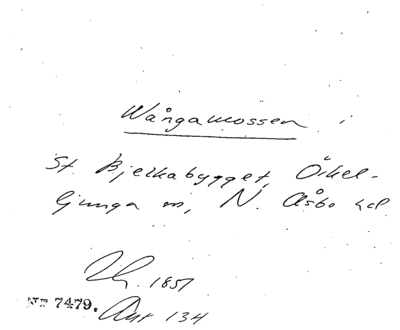 Wångamossen i
St. Bjelkabygget, Örkel-
ljunga sn, N. Åsbo hd.
1851
N:R 7479. Ant 134